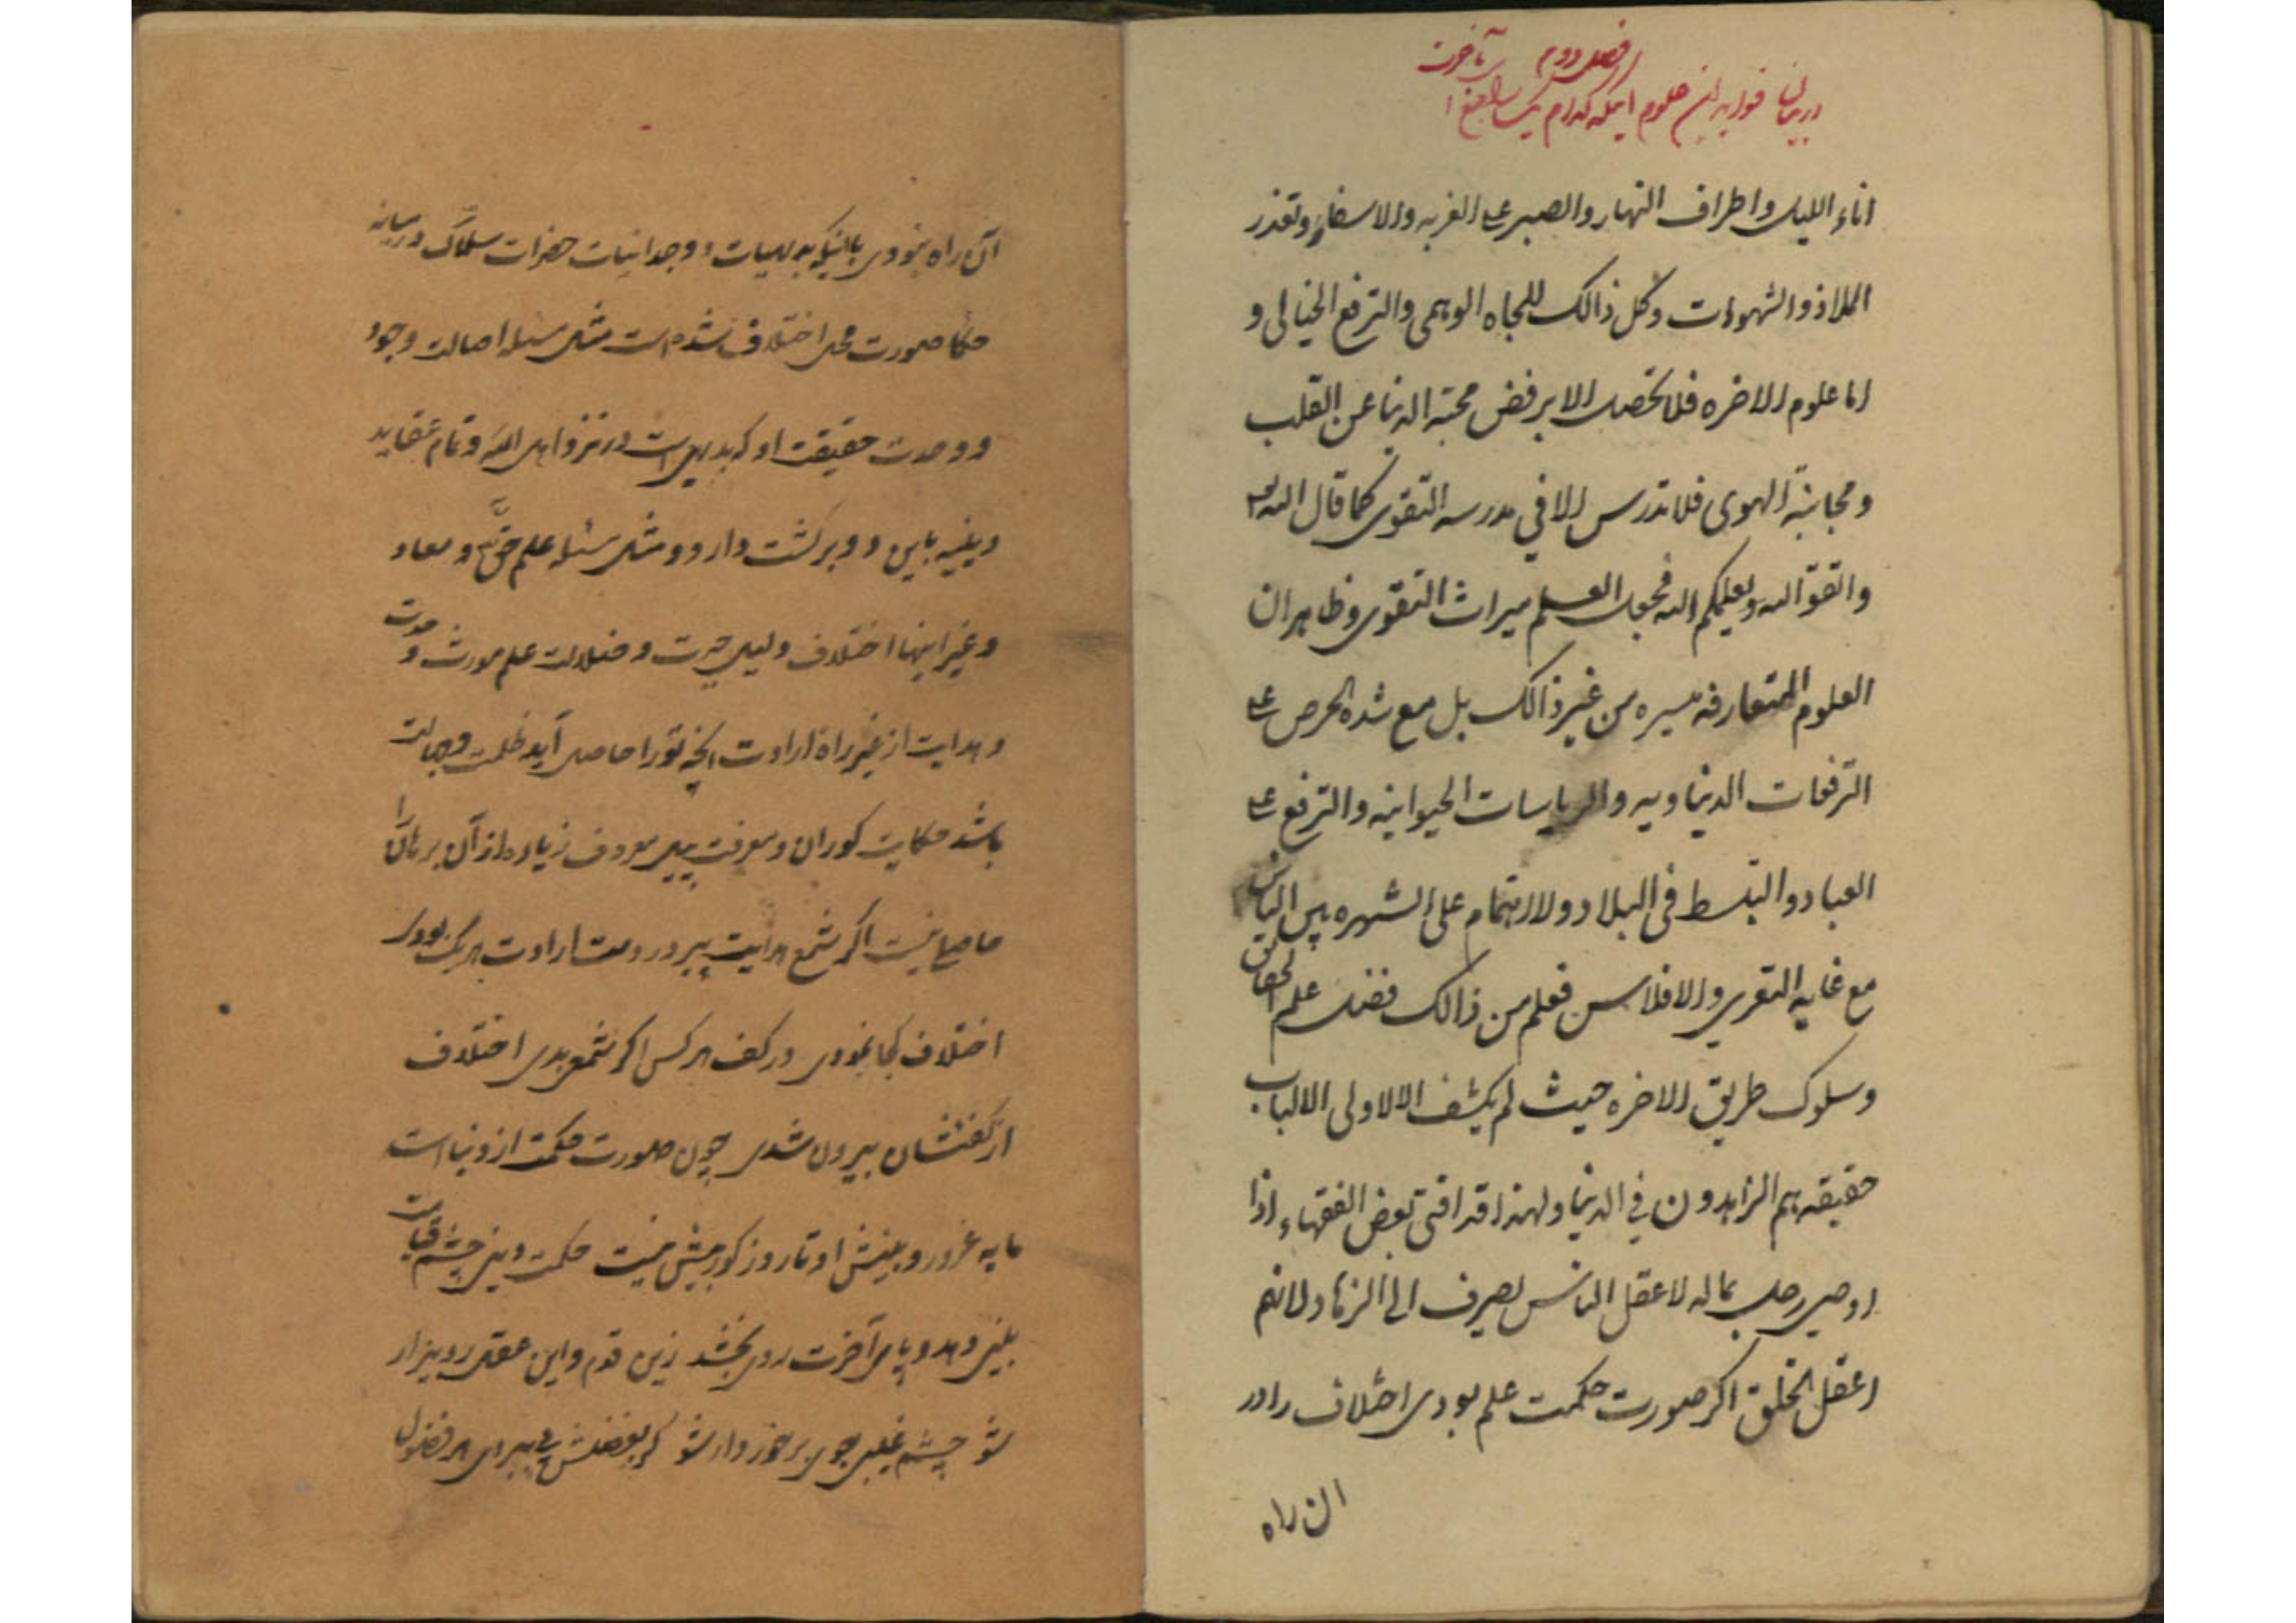 فصل دوم
در بیان فواید این علوم اینکه کدام یک نافع است بآخرت
اناء اللیل واطراف النهار والصبر علی الغربه والاسفار وتعذر
الملاذ والشهوات وکل ذالک للجاه الوهمی والترفع الخیالی و
اما علوم الاخره فلا تحصل الا برفض محبته الدنیا عن القلب
ومجانبة الهوی فلا تدرس الا فی مدرسه التقوی کما قال الله تعالی
واتقو الله ویعلمکم الله فجعل العلم میراث التقوی وظاهر ان
العلوم المتعارفه میسره من غیر ذالک بل مع شده الحرص علی
الترفعات الدنیاویه والریاسات الحیوانیه والترفع علی
العباد والتبسط فی البلاد والاهتمام علی الشهره بین الناس
مع غایه التعری والافلاس فعلم من ذالک فضل علم الحقائق
وسلوک طریق الاخره حیث لم یکشف الا لاولی الالباب
حقیقه هم الزاهدون فی الدنیا ولهذا قد افتی بعض الفقهاء اذا
اوصی رجل بماله لاعقل الناس یصرف الی الزهاد لانهم
اعقل الخلق اکر صورت حکمت علم بودی اختلاف را در
ان راه
آن راه نبودی با اینکه بدیهیات و وجدانیات حضرات سلاک در میانه
حکما صورت محل اختلاف شده است مثل مسئله اصالت وجود
و وحدت حقیقت او که بدیهی است در نزد اهل الله و تمام عقاید
دینیه باین دو برکشت دارد و مثل مسئله علم حق و معاد
و غیر اینها اختلاف دلیل حیرت و ضلالت علم مورث وحدت
و هدایت از غیر راه ارادت انچه تو را حاصل آید ظلمت و جهالت
باشد حکایت کوران و معرفت پیل معروف زیاده از آن برهان را
حاصلی نیست اکر شمع هدایت پیر در دست ارادت هر یک بودی
اختلاف کجا نمودی در کف هر کس اکر شمعی بدی اختلاف
از کفتشان بیرون شدی چون صورت حکمت از دنیا است
مایه غرور و بینش او تا روز کور بیش نیست حکمت دینی چشم قیامت
بینی دهد و پای آخرت روی بخشد زین قدم واین عقل رو بیزار
شو چشم غیبی جوی برخوردار شو